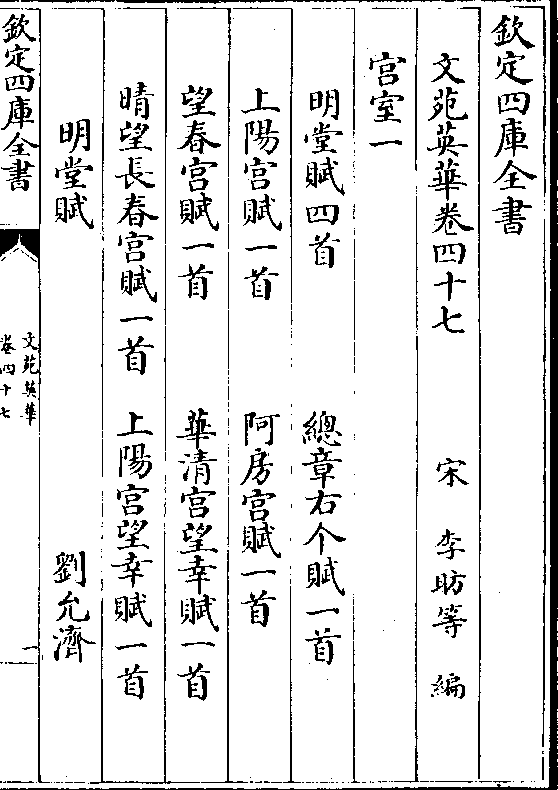 欽定四庫全書
文苑英華卷四十七
宋 李昉等 編
宮室一
明堂賦四首 總章右个賦一首
上陽宮賦一首 阿房宮賦一首
望春宮賦一首 華清宮望幸賦一首
晴望長春宮賦一首 上陽宮望幸賦一首
明堂賦 劉允濟
欽定四庫全書
文苑英華
卷四十七
一